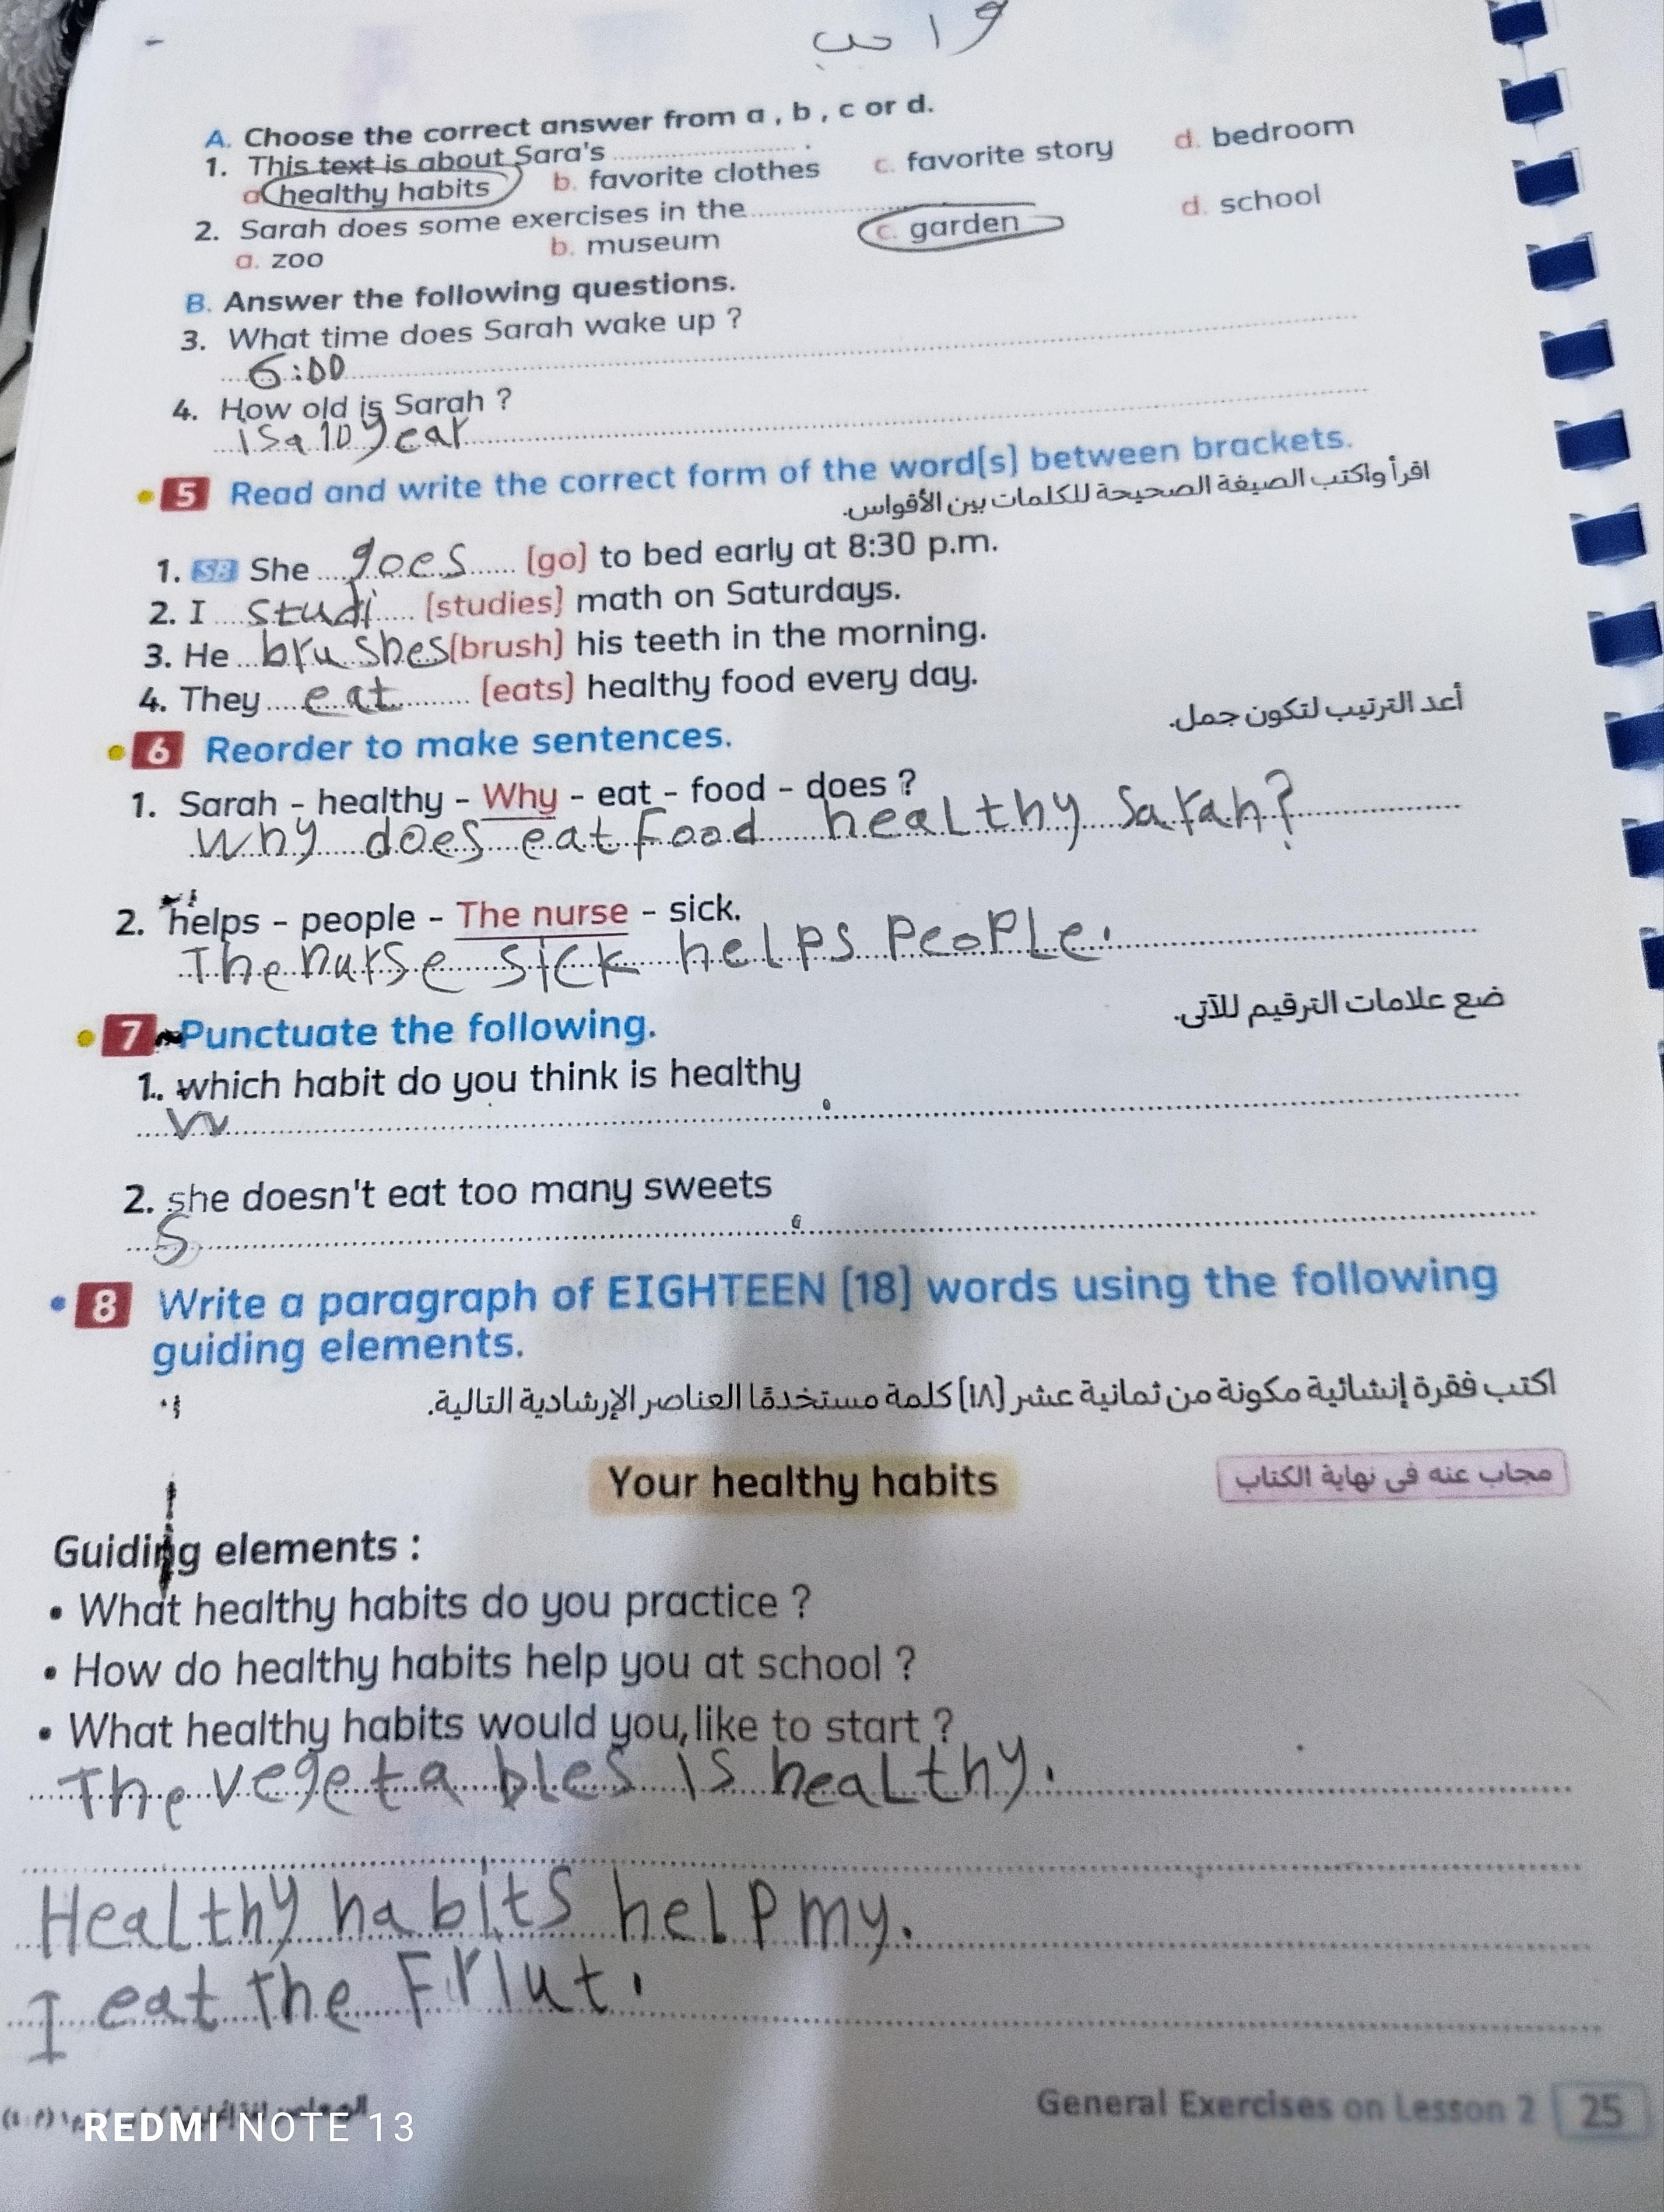 واجب
A. Choose the correct answer from a , b , c or d.
1. This text is about Sara's ................ .
a. healthy habits b. favorite clothes c. favorite story d. bedroom
2. Sarah does some exercises in the ................
a. zoo b. museum c. garden d. school
B. Answer the following questions.
3. What time does Sarah wake up ?
6:00
4. How old is Sarah ?
is a 10 year
5 Read and write the correct form of the word(s) between brackets.
اقرأ واكتب الصيغة الصحيحة للكلمات بين الأقواس.
1. SB She goes (go) to bed early at 8:30 p.m.
2. I studi (studies) math on Saturdays.
3. He brushes (brush) his teeth in the morning.
4. They eat (eats) healthy food every day.
6 Reorder to make sentences. أعد الترتيب لتكون جمل.
1. Sarah - healthy - Why - eat - food - does ?
Why does eat food healthy Sarah?
2. helps - people - The nurse - sick.
The nurse sick helps people.
7 Punctuate the following. ضع علامات الترقيم للآتى.
1. which habit do you think is healthy
W .
2. she doesn't eat too many sweets
S .
8 Write a paragraph of EIGHTEEN (18) words using the following
guiding elements.
اكتب فقرة إنشائية مكونة من ثمانية عشر (١٨) كلمة مستخدمًا العناصر الإرشادية التالية.
Your healthy habits مجاب عنه فى نهاية الكتاب
Guiding elements :
• What healthy habits do you practice ?
• How do healthy habits help you at school ?
• What healthy habits would you like to start ?
The vegetables is healthy.
Healthy habits help my.
I eat the Friut.
General Exercises on Lesson 2 25
REDMI NOTE 13